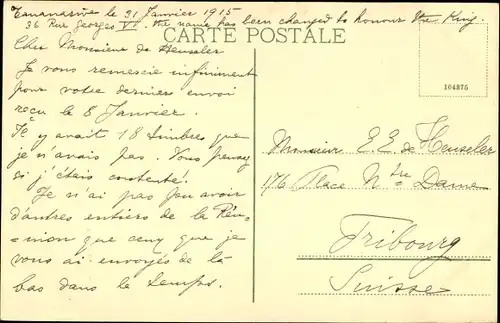 Tananarive le 31 Janvier 1915
36 Rue Georges VI. the name has been changed to honour the King.
CARTE POSTALE
Cher Monsieur de Heuseler
Je vous remercie infiniment
pour votre dernier envoi
reçu le 8 Janvier.
Il y avait 18 timbres que
je n'avais pas. Vous pensez
si j'étais contente.
Je n'ai pas pu avoir
d'autres entiers de la Réu-
=nion que ceux que je
vous ai envoyés de là
bas dans le temps.
104875
Monsieur E. E. de Heuseler
176 Place Ntre Dame
Fribourg
Suisse